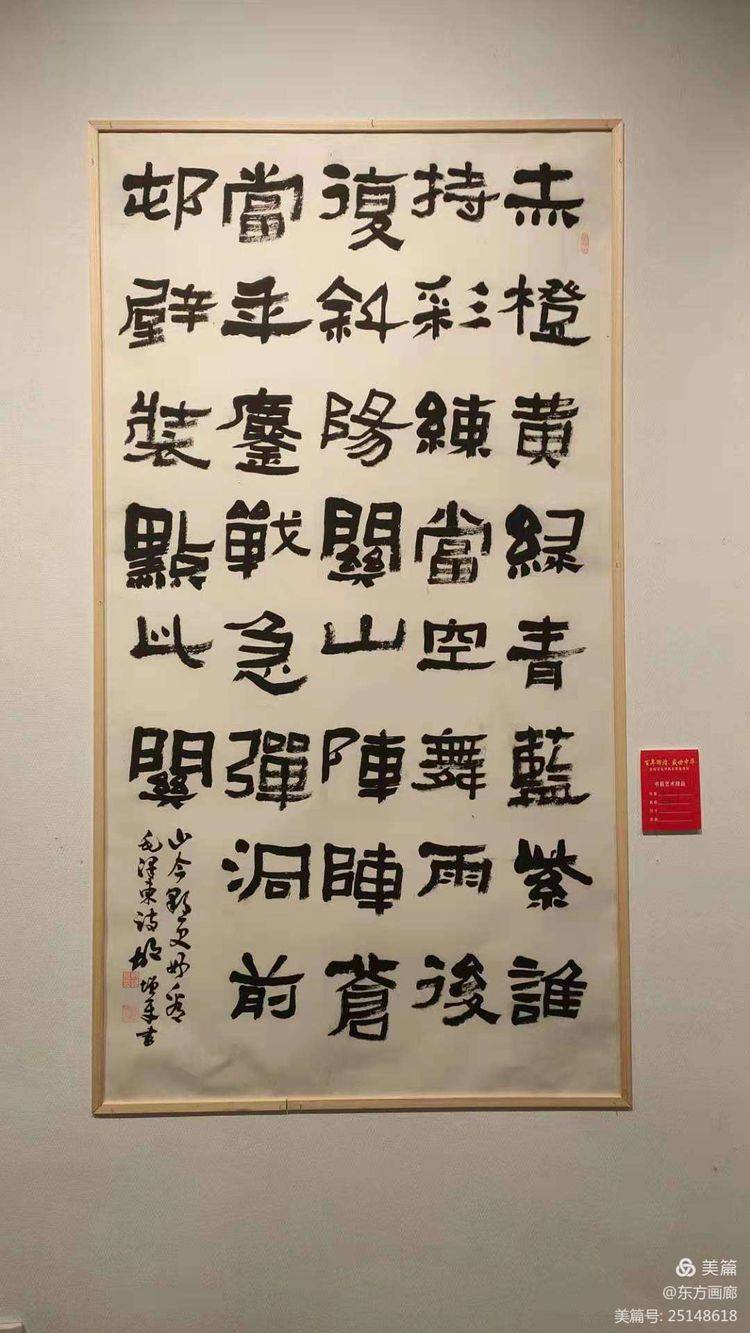 赤橙黄緑青藍紫誰
持彩練當空舞雨後
復斜陽關山陣陣蒼
當年鏖戰急彈洞前
邨壁裝點此關
山今朝更好看
毛澤東詩
百年辉煌 盛世中华
书画艺术精品
美篇
@东方画廊
美篇号: 25148618